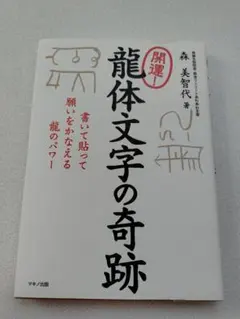 開運!
龍体文字の奇跡
森 美智代 著
書いて貼って
願いをかなえる
龍のパワー
マキノ出版